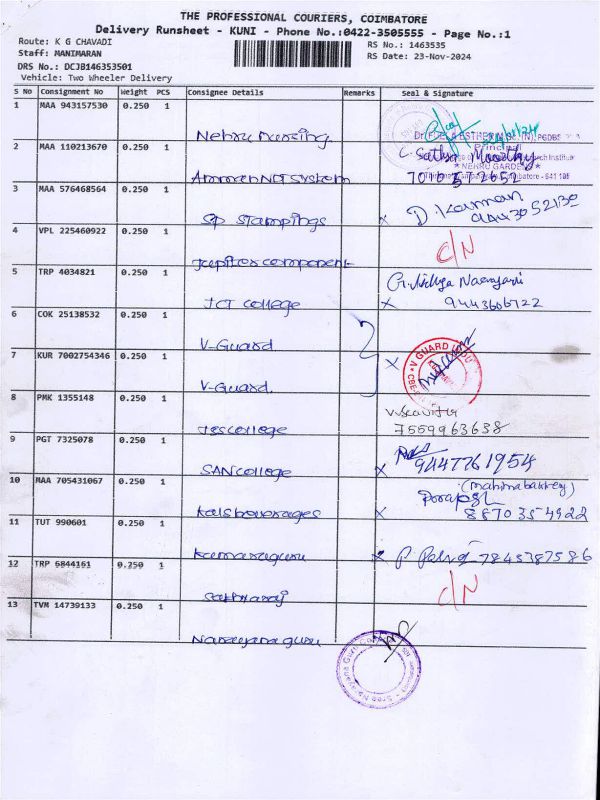 THE PROFESSIONAL COURIERS, COIMBATORE
Delivery Runsheet - KUNI - Phone No.:0422-3505555 - Page No.:1
Route: K G CHAVADI
RS No.: 1463535
Staff: MANIMARAN
RS Date: 23-Nov-2024
DRS No.: DCJB146353501
Vehicle: Two Wheeler Delivery
S No Consignment No Weight PCS Consignee Details Remarks Seal & Signature
1 MAA 943157530 0.250 1 Nehru Nursing
Principal
NEHRU GARDENS
2 MAA 110213670 0.250 1 Amman NDT System C. Sathya Moorthy
3 MAA 576468564 0.250 1 SP Stampings x D. Kannan
4 VPL 225460922 0.250 1 Jupiter component C/N
5 TRP 4034821 0.250 1 JCT College x 9443606722
6 COK 25138532 0.250 1 V-Guard
7 KUR 7002754346 0.250 1 V-Guard x V GUARD
8 PMK 1355148 0.250 1 college 7559963638
9 PGT 7325078 0.250 1 SAN college x 9447761954
10 MAA 705431067 0.250 1 Kals beverages x 8870354922
11 TUT 990601 0.250 1 Kumaraguru x P 7845387586
12 TRP 6844161 0.250 1 Sathuraj C/N
13 TVM 14739133 0.250 1 Narayana guru